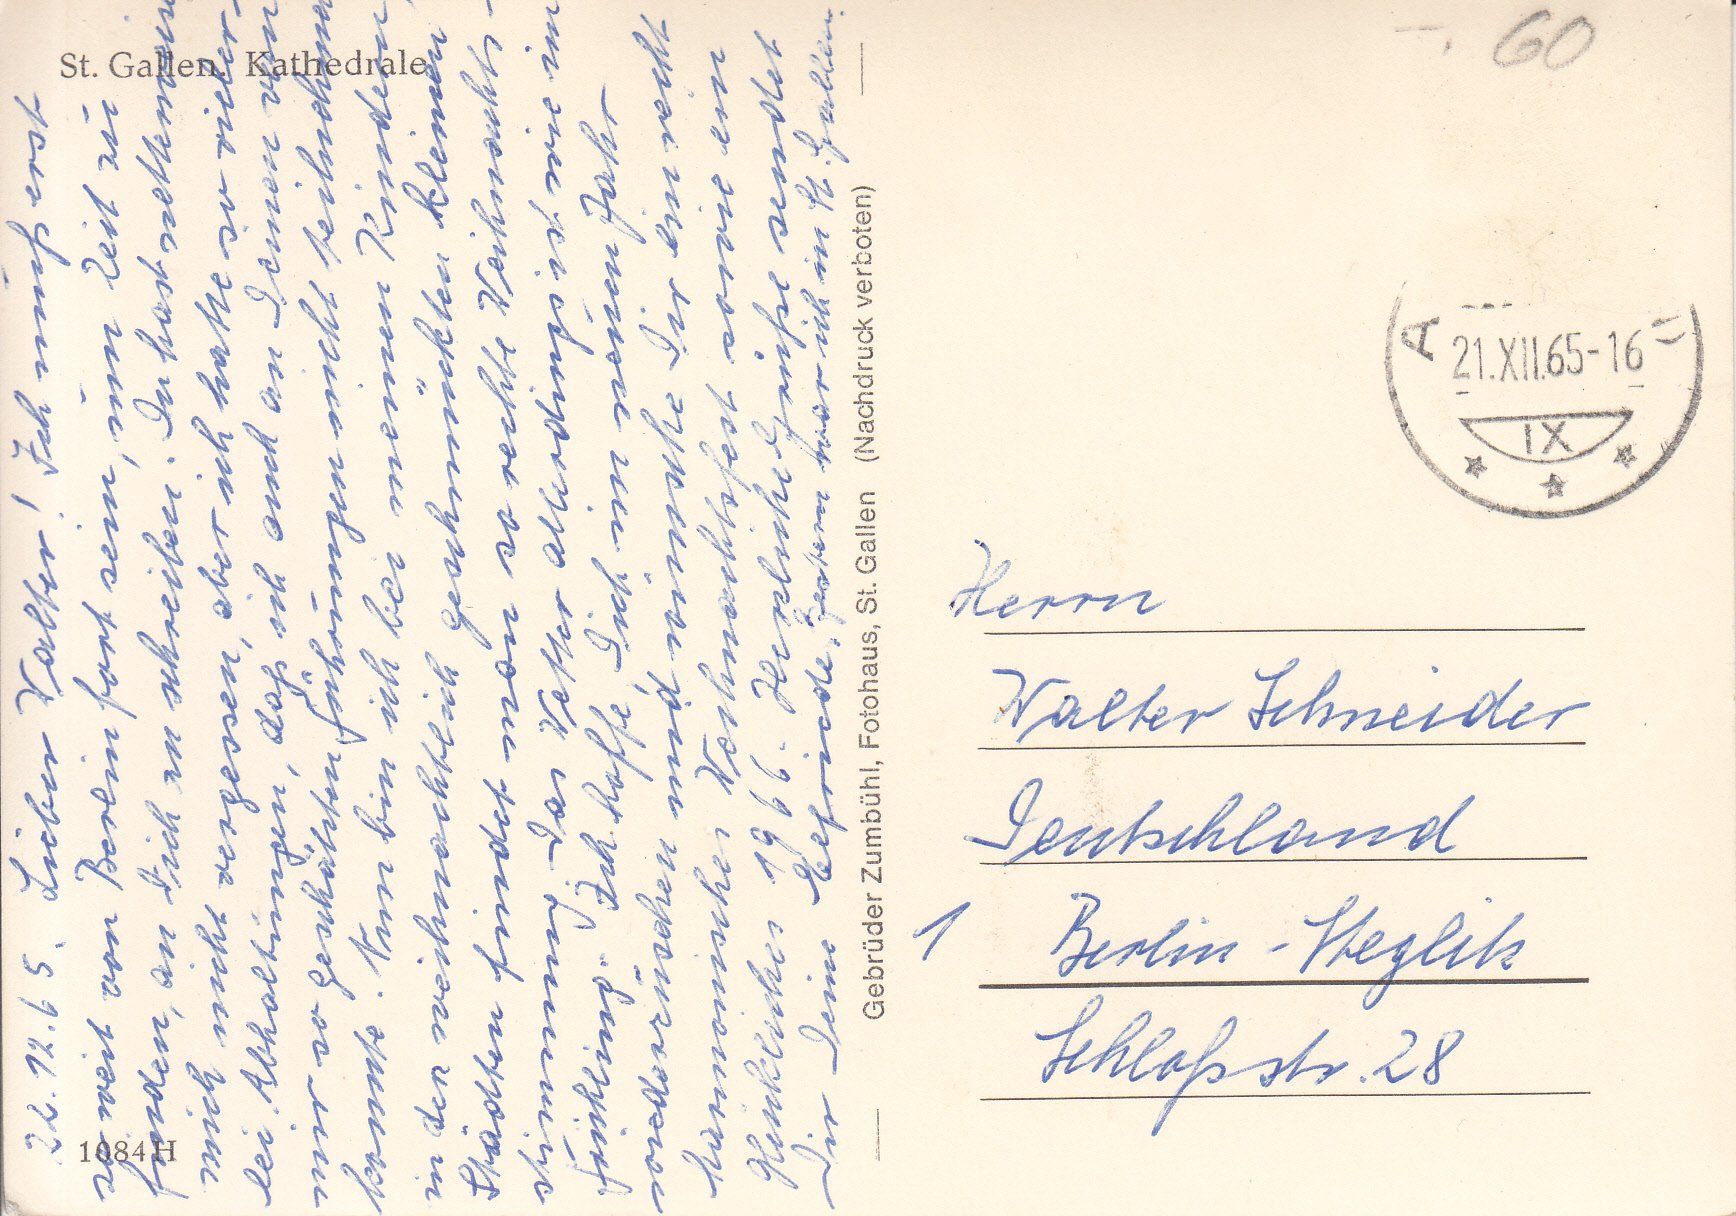 St. Gallen. Kathedrale
22.12.65. Lieber Walter! Ich muß erst
soweit von Berlin fort sein, um Zeit zu
finden, an Dich zu schreiben. Du hast
mich nicht vergessen, aber ich hatte so vieler-
lei Abhaltungen, daß ich auch an Deinen von
mir so geschätzten Führungen nicht teilnehmen
konnte. Nun bin ich bei meinen Kindern,
in den weihnachtlich geschmückten kleinen
Städten findet man so rechte Weihnachts-
stimmung. Das Wetter allerdings ist wie im
Frühling. Ich hoffe Dich im neuen Jahr
wiederzusehen und wünsche Dir ein recht
harmonisches Weihnachtsfest sowie ein
Glückliches 1966. Herzliche Grüße sendet
Dir Deine Elfriede. Gestern war ich in St. Gallen.
1084 H
Gebrüder Zumbühl, Fotohaus, St. Gallen (Nachdruck verboten)
60
A
21.XII.65-16
IX
Herrn
Walter Schneider
Deutschland
1 Berlin-Steglitz
Schloßstr. 28